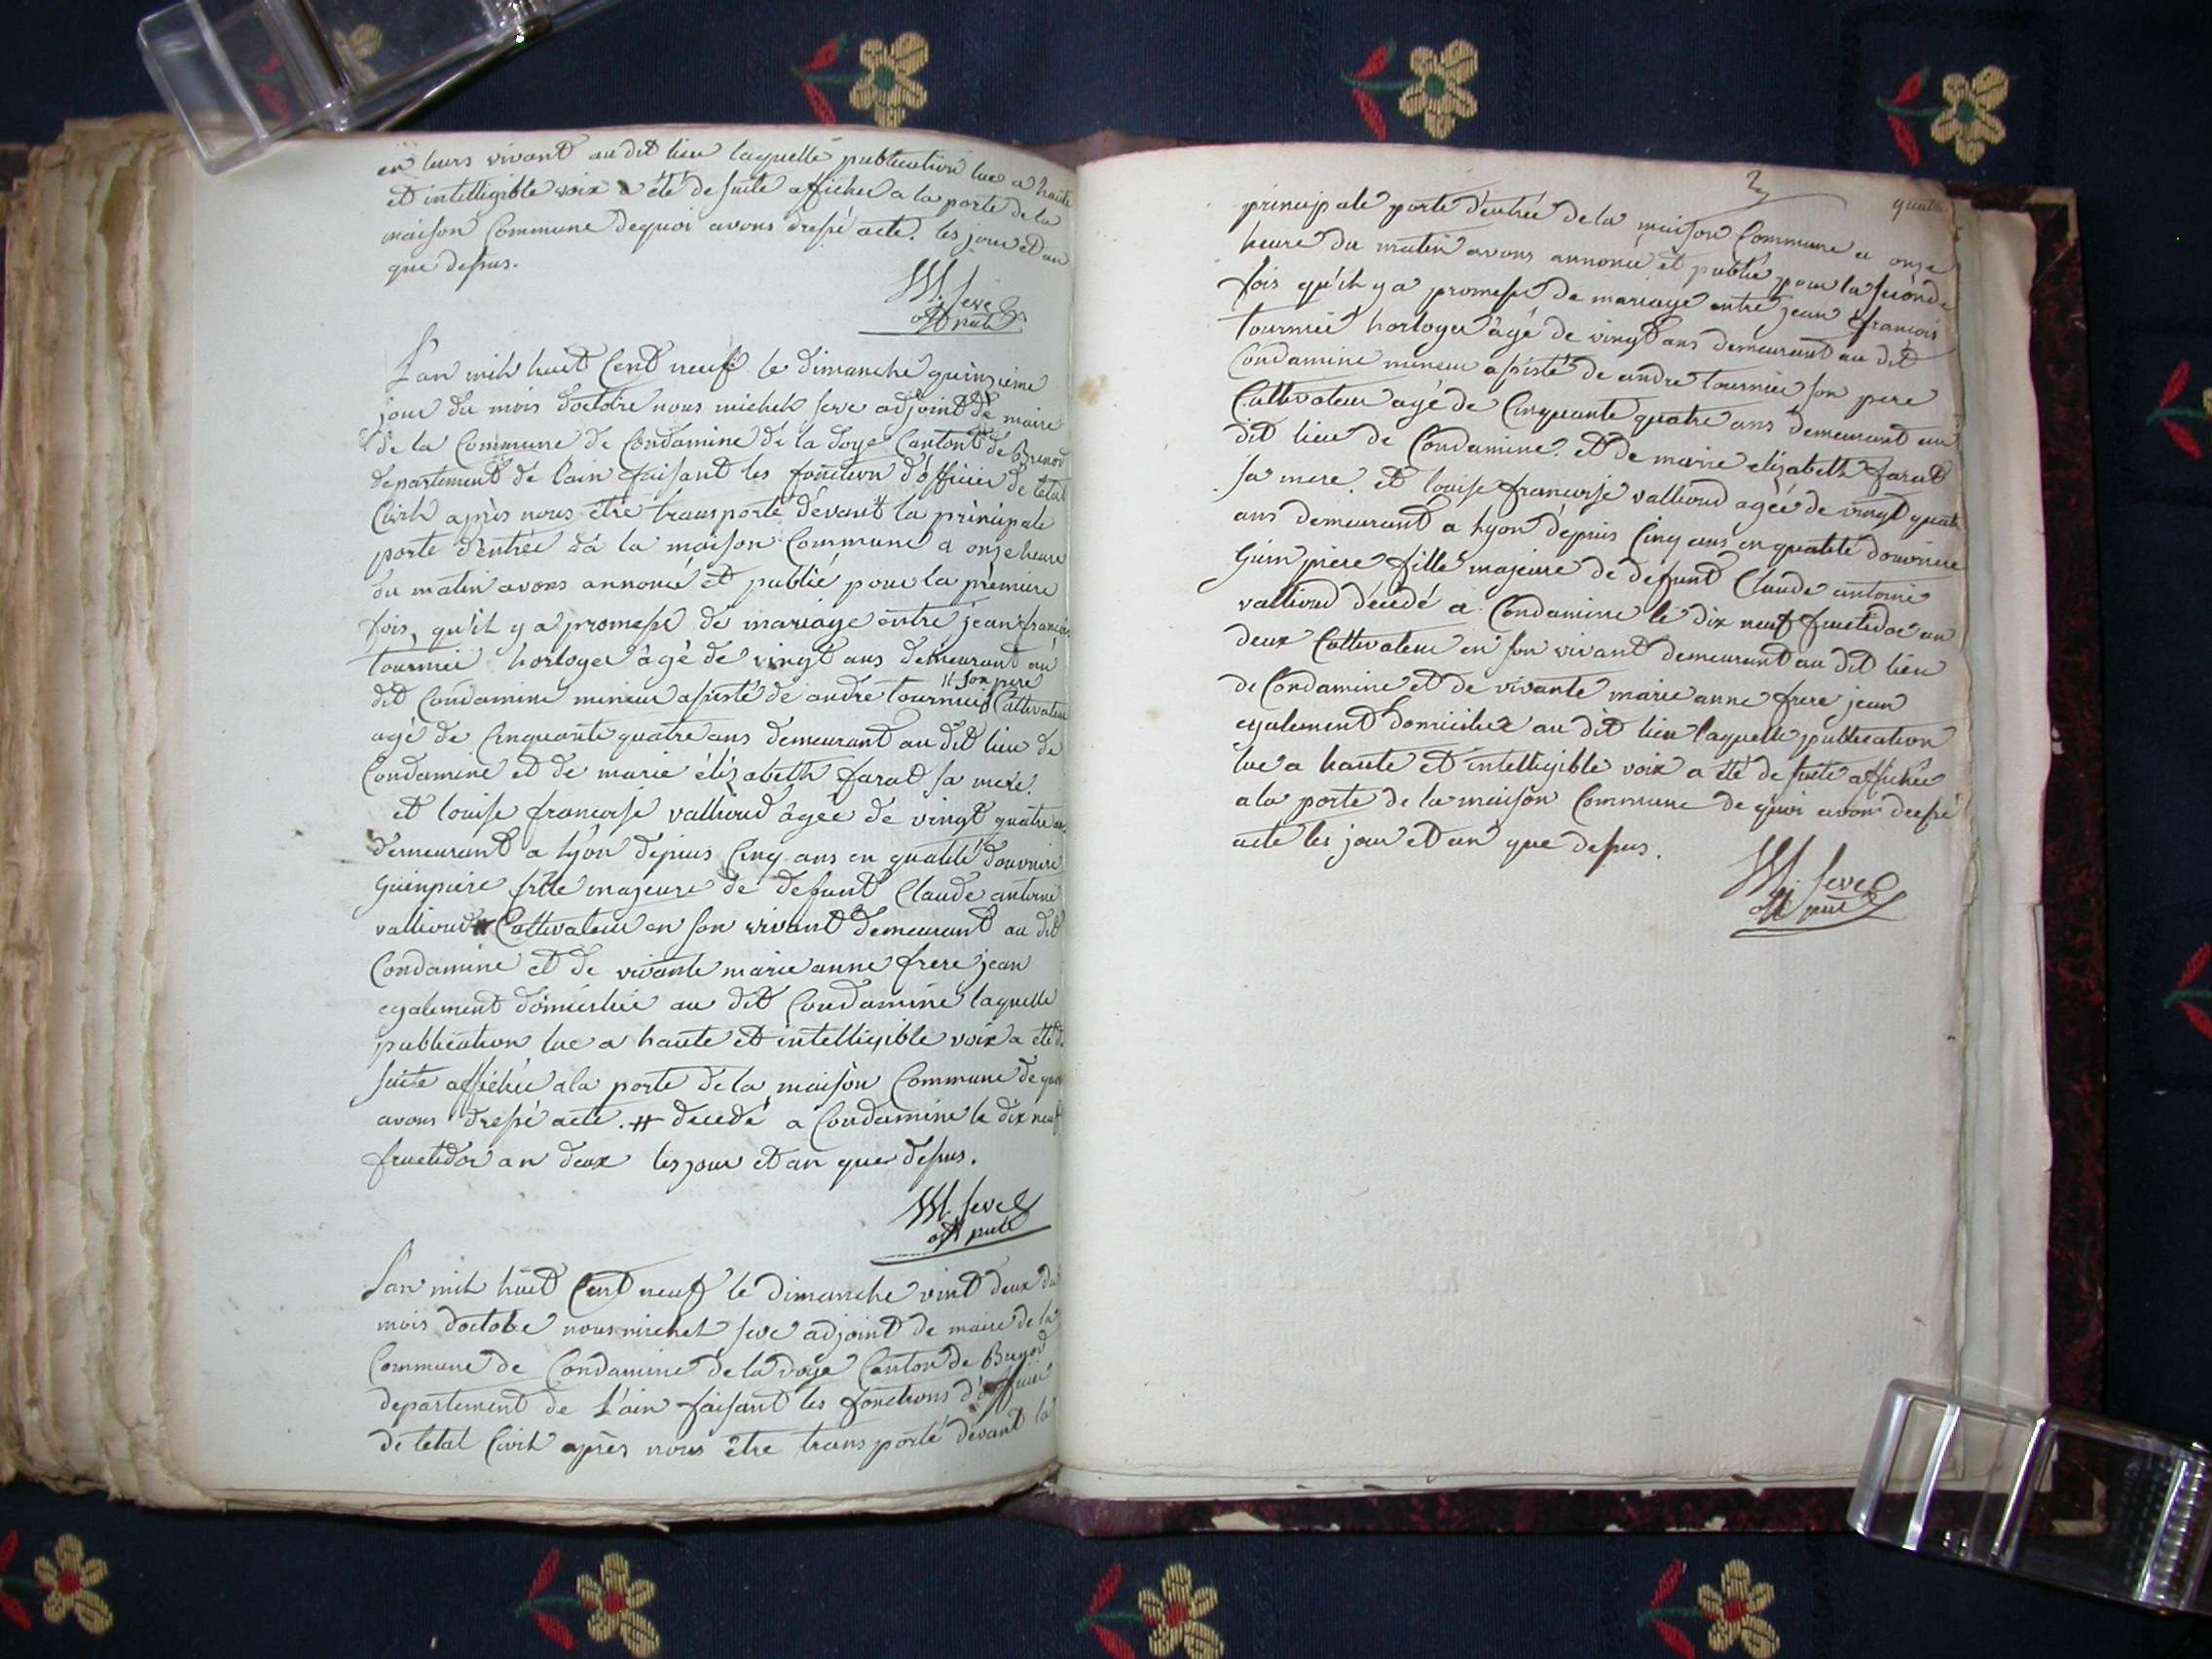 en leurs vivant au dit lieu laquelle publication lue a haute
et intelligible voix a été de suite affichee a la porte de la
maison Commune dequoi avons dressé acte. les jour et an
que dessus.
M. seve
adt
L'an mil huit Cent neuf le dimanche quinzieme
jour du mois doctobre nous michel seve adjoint de maire
de la Commune de Condamine de la doye Canton de Brenod
departement de lain faisant les fonction d'officier de letat
Civil après nous être transporté dévant la principale
porte d'entrée dé la maison Commune a onze heure
du matin avons annoncé et publié pour la prémiere
fois, qu'il y a promesse de mariage entre jean françois
tournier horloger âgé de vingt ans demeurant au
dit Condamine mineur assisté de andre tournier # son pere Cultivateur
agé de Cinquante quatre ans demeurant au dit lieu de
Condamine et de marie élizabeth farat sa mere.
et louise francoise vallioud âgée de vingt quatre ans
demeurant a lyon dépius Cinq ans en qualité douvriere
Guinpiere fille majeure de defunt Claude antoine
vallioud # Cultivateur en son vivant demeurant au dit
Condamine et de vivante marie anne frere jean
egalement domiciliée au dit Condamine laquelle
publication lue a haute et intelligible voix a été de
suite affichée a la porte de la maison Commune de quoi
avons dressé acte. # decedé a Condamine le dix neuf
fructidor an deux les jour et an que dessus.
M. seve
adt
L'an mil huit Cent neuf le dimanche vint deux du
mois doctobe nous michel seve adjoint de maire de la
Commune de Condamine de la doye Canton de Brenod
departement de L'ain faisant les fonctions d'officier
de letat Civil après nous être transporté dévant la
quatre
principale porte d'entrée de la maison Commune a onze
heure du matin avons annoncé et publié pour la seconde
fois qu'il y a promesse de mariage entre jean françois
tournier horloger âgé de vingt ans demeurant au dit
Condamine mineur assisté de andre tournier son pere
Cultivateur agé de Cinquante quatre ans demeurant au
dit lieu de Condamine. et de marie elizabeth farat
sa mere. et louise francoise vallioud agée de vingt quatre
ans demeurant a lyon dépuis Cinq ans en qualité douvriere
Guimpiere fille majeure de defunt Claude antoine
vallioud décédé a Condamine le dix neuf fructidor an
deux Cultivateur en son vivant demeurant au dit lieu
de Condamine et de vivante marie anne frere jean
egalement domiciliée au dit lieu laquelle publication
lue a haute et intelligible voix a été de suite affichée
a la porte de la maison Commune de quoi avons dressé
acte les jour et an que dessus.
M. seve
adt